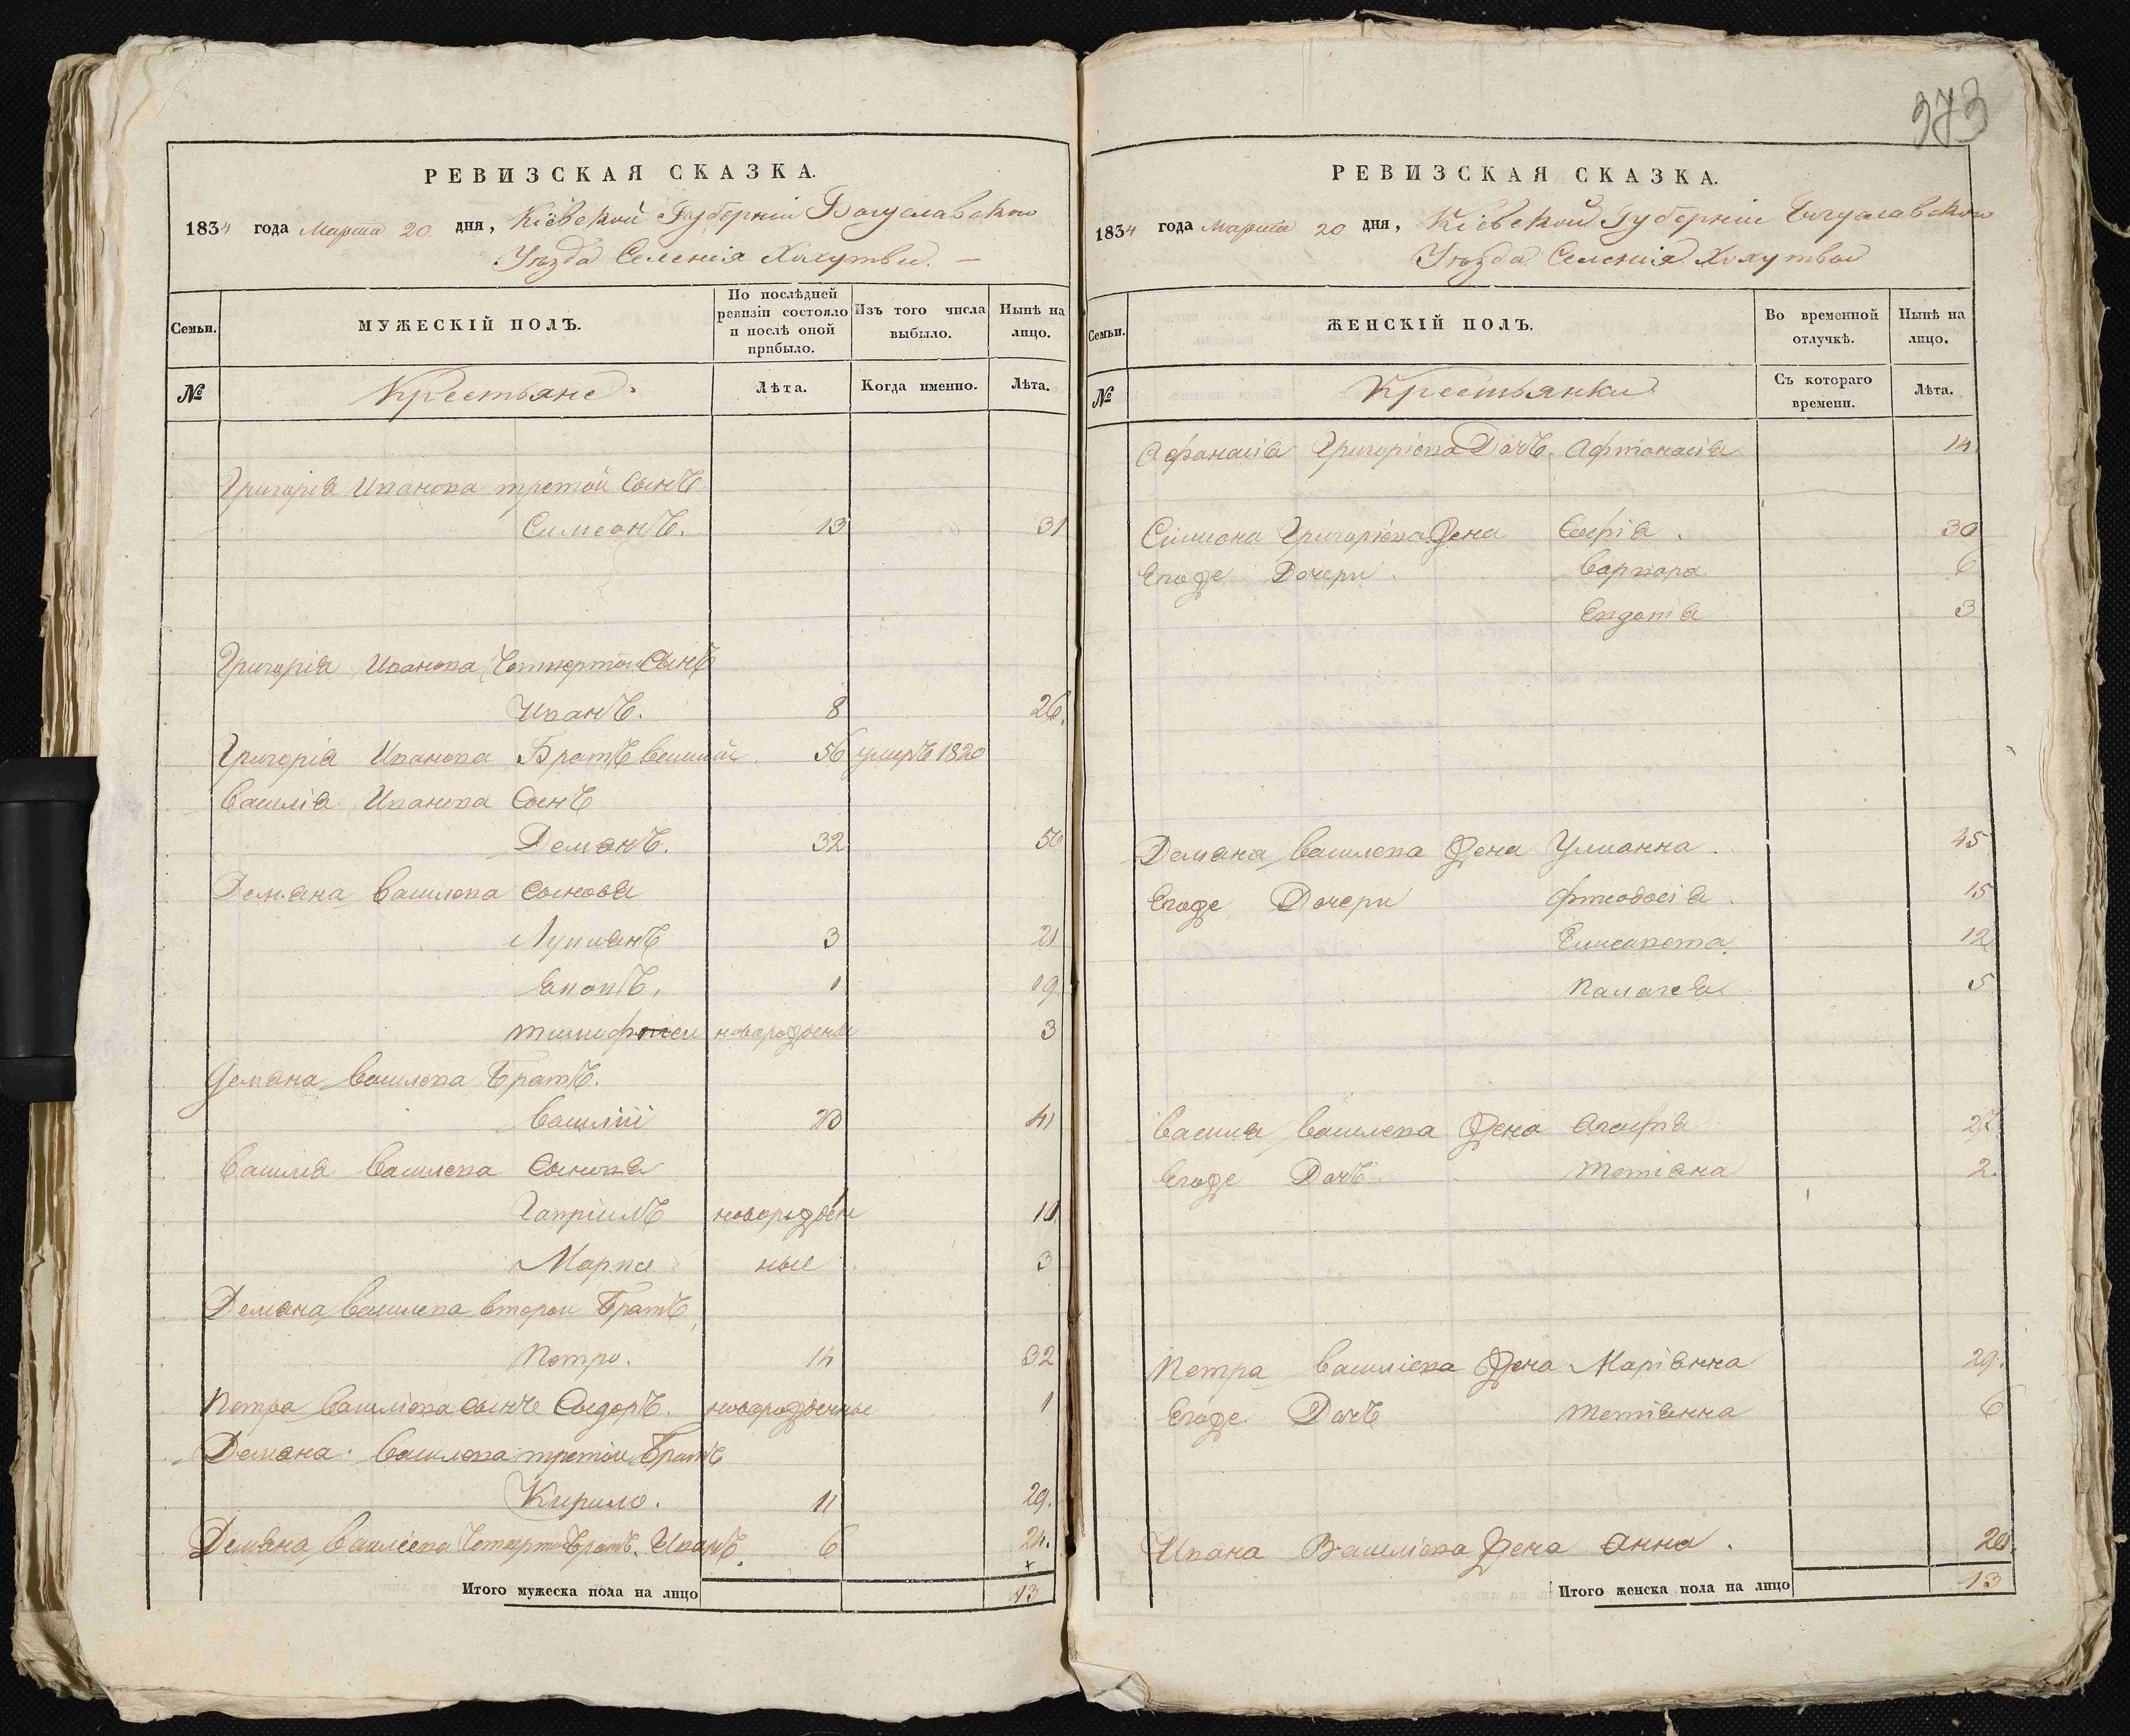 РЕВИЗСКАЯ СКАЗКА.
1834 года Марта 20 дня, Кіевской Губерніи Богуславского
Уѣзда Селенія Хохутвы. —
Семьи.
МУЖЕСКІЙ ПОЛЪ.
По послѣдней ревизіи состояло и послѣ оной прибыло.
Изъ того числа выбыло.
Нынѣ на лицо.
№
Крестьяне.
Лѣта.
Когда именно.
Лѣта.
Григорія Иванова третой Сынъ
Симеонъ. 13 31
Григорія Иванова Сынъ
Иванъ. 8 26.
Григорія Иванова Братъ 56 умеръ 1820
Василія Иванова Сынъ
Демянъ. 32 50
Демяна Василева Сыновя
3 21
1 19
новорожденые 3
Демяна Василева Братъ.
Василій 23 41
Василія Василева Сынове
Гавріилъ новорожден 10
Марко ные 3
Демяна Василева второй Братъ
Петро. 14 32
Петра Василіова сынъ Сидоръ. новорожденные 1
Демяна Василева третій Братъ
Кирило. 11 29.
Демяна Василева Братъ. Иванъ. 6 24.
Итого мужеска пола на лицо 13
373
РЕВИЗСКАЯ СКАЗКА.
1834 года Марта 20 дня, Кіевской Губерніи Богуславского
Уѣзда Селенія Хохутвы
Семьи.
ЖЕНСКІЙ ПОЛЪ.
Во временной отлучкѣ.
Нынѣ на лицо.
№
Крестьянки
Съ котораго времени.
Лѣта.
Афанасія Григоріева Дочъ 14
Симиона Григоріева Жена Софія. 30
Егоже Дочери Варвара 6
Евдотя 3
Демяна Василева Жена Улианна. 45
Егоже Дочери Фтеодосія. 15
Елисавета 12
Палагея 5
Василя Василева Жена Агафія 27
Егоже Дочъ Тетіяна 2.
Петра Василіева Жена Маріянна 29.
Егоже Дочъ Тетіянна 6
Ивана Василіова Жена Анна. 20.
Итого женска пола на лицо 13